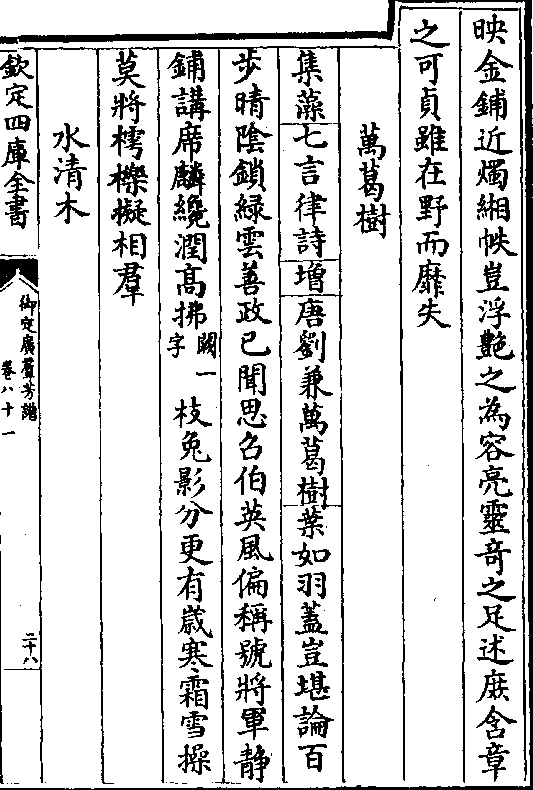 映金鋪近燭緗帙豈浮艷之為容亮靈奇之足述庶含章
之可貞雖在野而靡失
萬葛樹
集藻七言律詩增唐劉兼萬葛樹葉如羽蓋豈堪論百
步晴陰鎖綠雲善政已聞思召伯英風偏稱號將軍靜
鋪講席麟纔潤高拂闕一字枝兔影分更有歲寒霜雪操
莫將樗櫟擬相羣
水清木
欽定四庫全書
御定廣羣芳譜
卷八十一
二十八